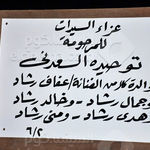 عزاء السيدات
للمرحومة
توحيده السعدنى
والدة كلا من الفنانة/عفاف رشاد
وجمال رشاد - وخالد رشاد
وهدى رشاد - ومنى رشاد
٦/٢